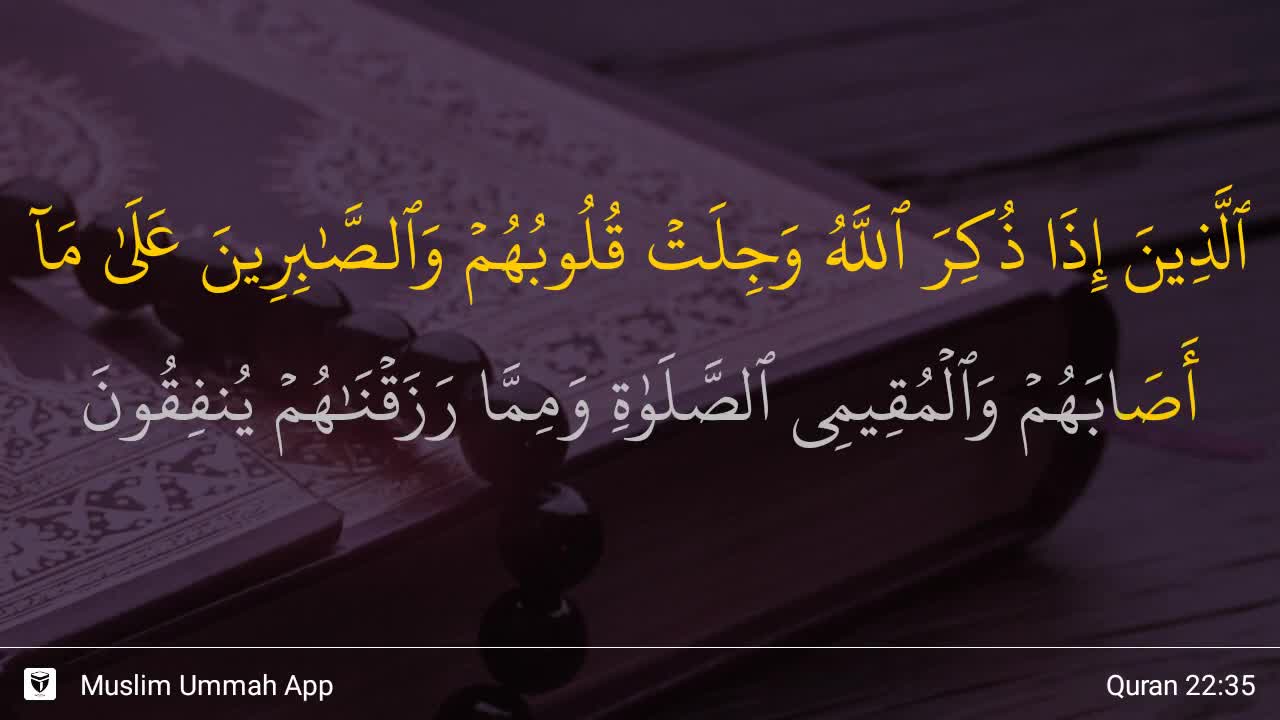 ٱلَّذِينَ إِذَا ذُكِرَ ٱللَّهُ وَجِلَتۡ قُلُوبُهُمۡ وَٱلصَّٰبِرِينَ عَلَىٰ مَآ
أَصَابَهُمۡ وَٱلۡمُقِيمِي ٱلصَّلَوٰةِ وَمِمَّا رَزَقۡنَٰهُمۡ يُنفِقُونَ
Muslim Ummah App
Quran 22:35